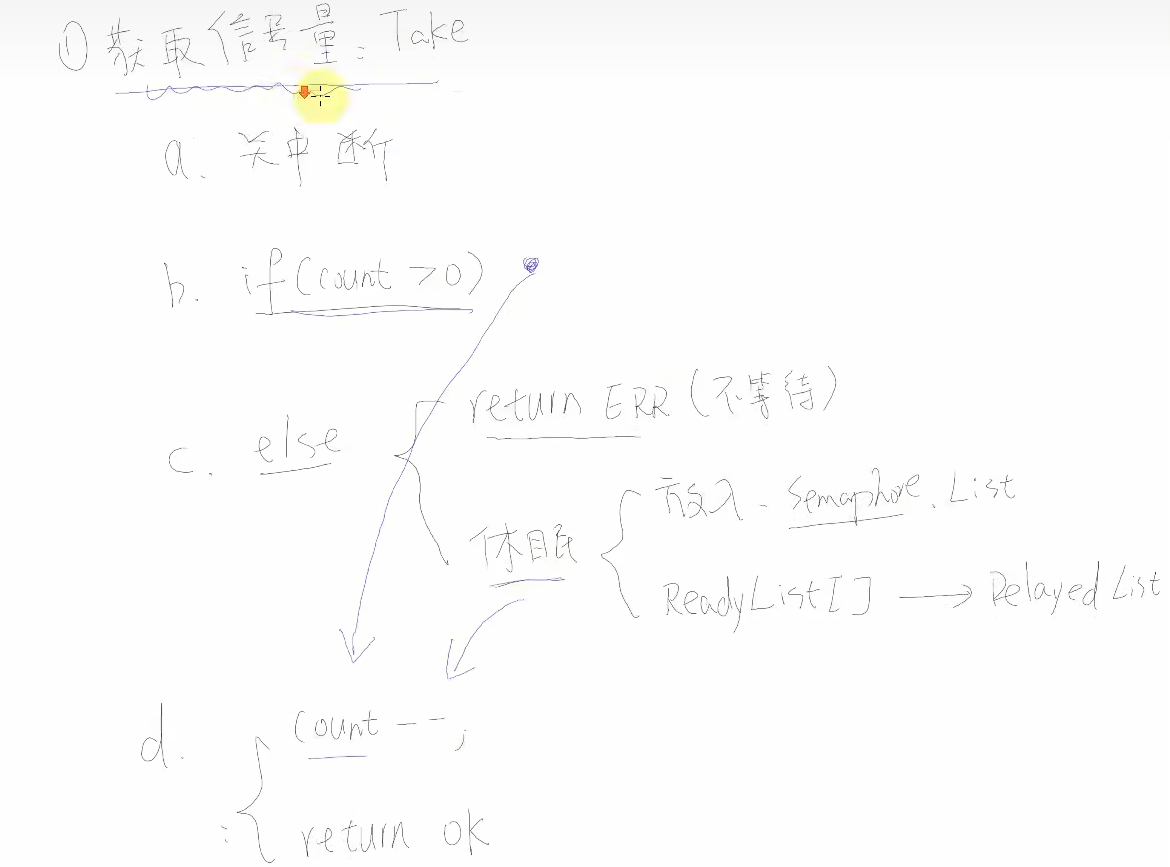 ① 获取信号量: Take
a. 关中断
b. if(count >0)
c. else
return ERR (不等待)
休眠
放入. Semaphore. List
ReadyList[] → Delayed List
d. count--;
return ok